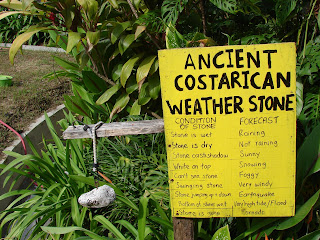 ANCIENT
COSTARICAN
WEATHER STONE
CONDITION OF STONE FORECAST
Stone is wet Raining
Stone is dry Not raining
Stone cast shadow Sunny
White on top Snowing
Can't see stone Foggy
Swinging stone Very windy
Stone jumping up + down Earthquake
Bottom of stone wet Very high tide / Flood
Stone is gone Tornado